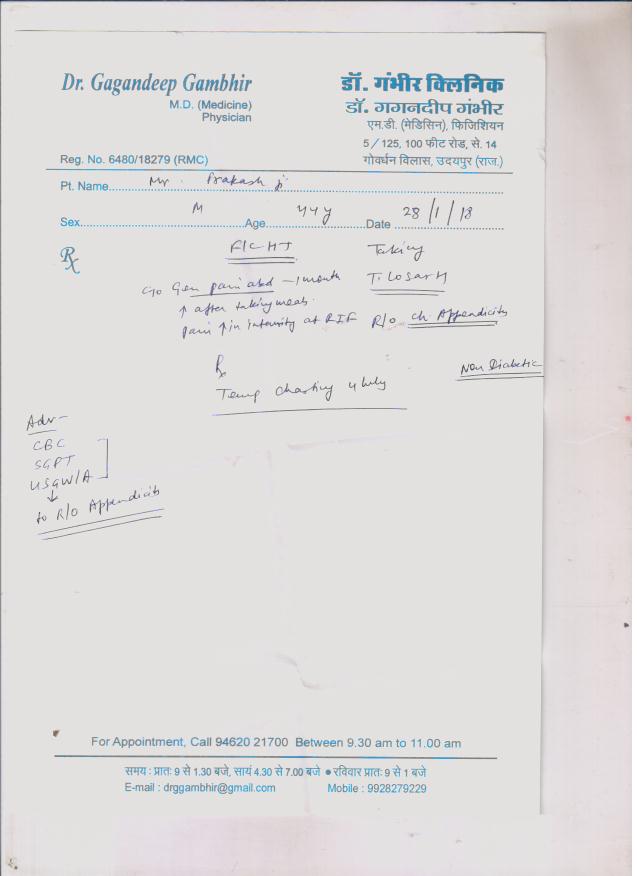 Dr. Gagandeep Gambhir
M.D. (Medicine)
Physician
Reg. No. 6480/18279 (RMC)
डॉ. गंभीर क्लिनिक
डॉ. गगनदीप गंभीर
एम.डी. (मेडिसिन), फिजिशियन
5 / 125, 100 फीट रोड, से. 14
गोवर्धन विलास, उदयपुर (राज.)
Pt. Name Mr. Prakash ji
Sex M Age 44 y Date 28/1/18
Rx F/C HT Taking
C/o Gen pain abd - 1 month T. Losar H
↑ after taking meals.
pain ↑ in intensity at RIF R/o ch. Appendicitis
Rx Non Diabetic
Temp charting 4 hrly
Adv -
CBC
SGPT
USG W/A
↓
to R/o Appendicitis
For Appointment, Call 94620 21700 Between 9.30 am to 11.00 am
समय : प्रातः 9 से 1.30 बजे, सायं 4.30 से 7.00 बजे ● रविवार प्रातः 9 से 1 बजे
E-mail : drggambhir@gmail.com Mobile : 9928279229